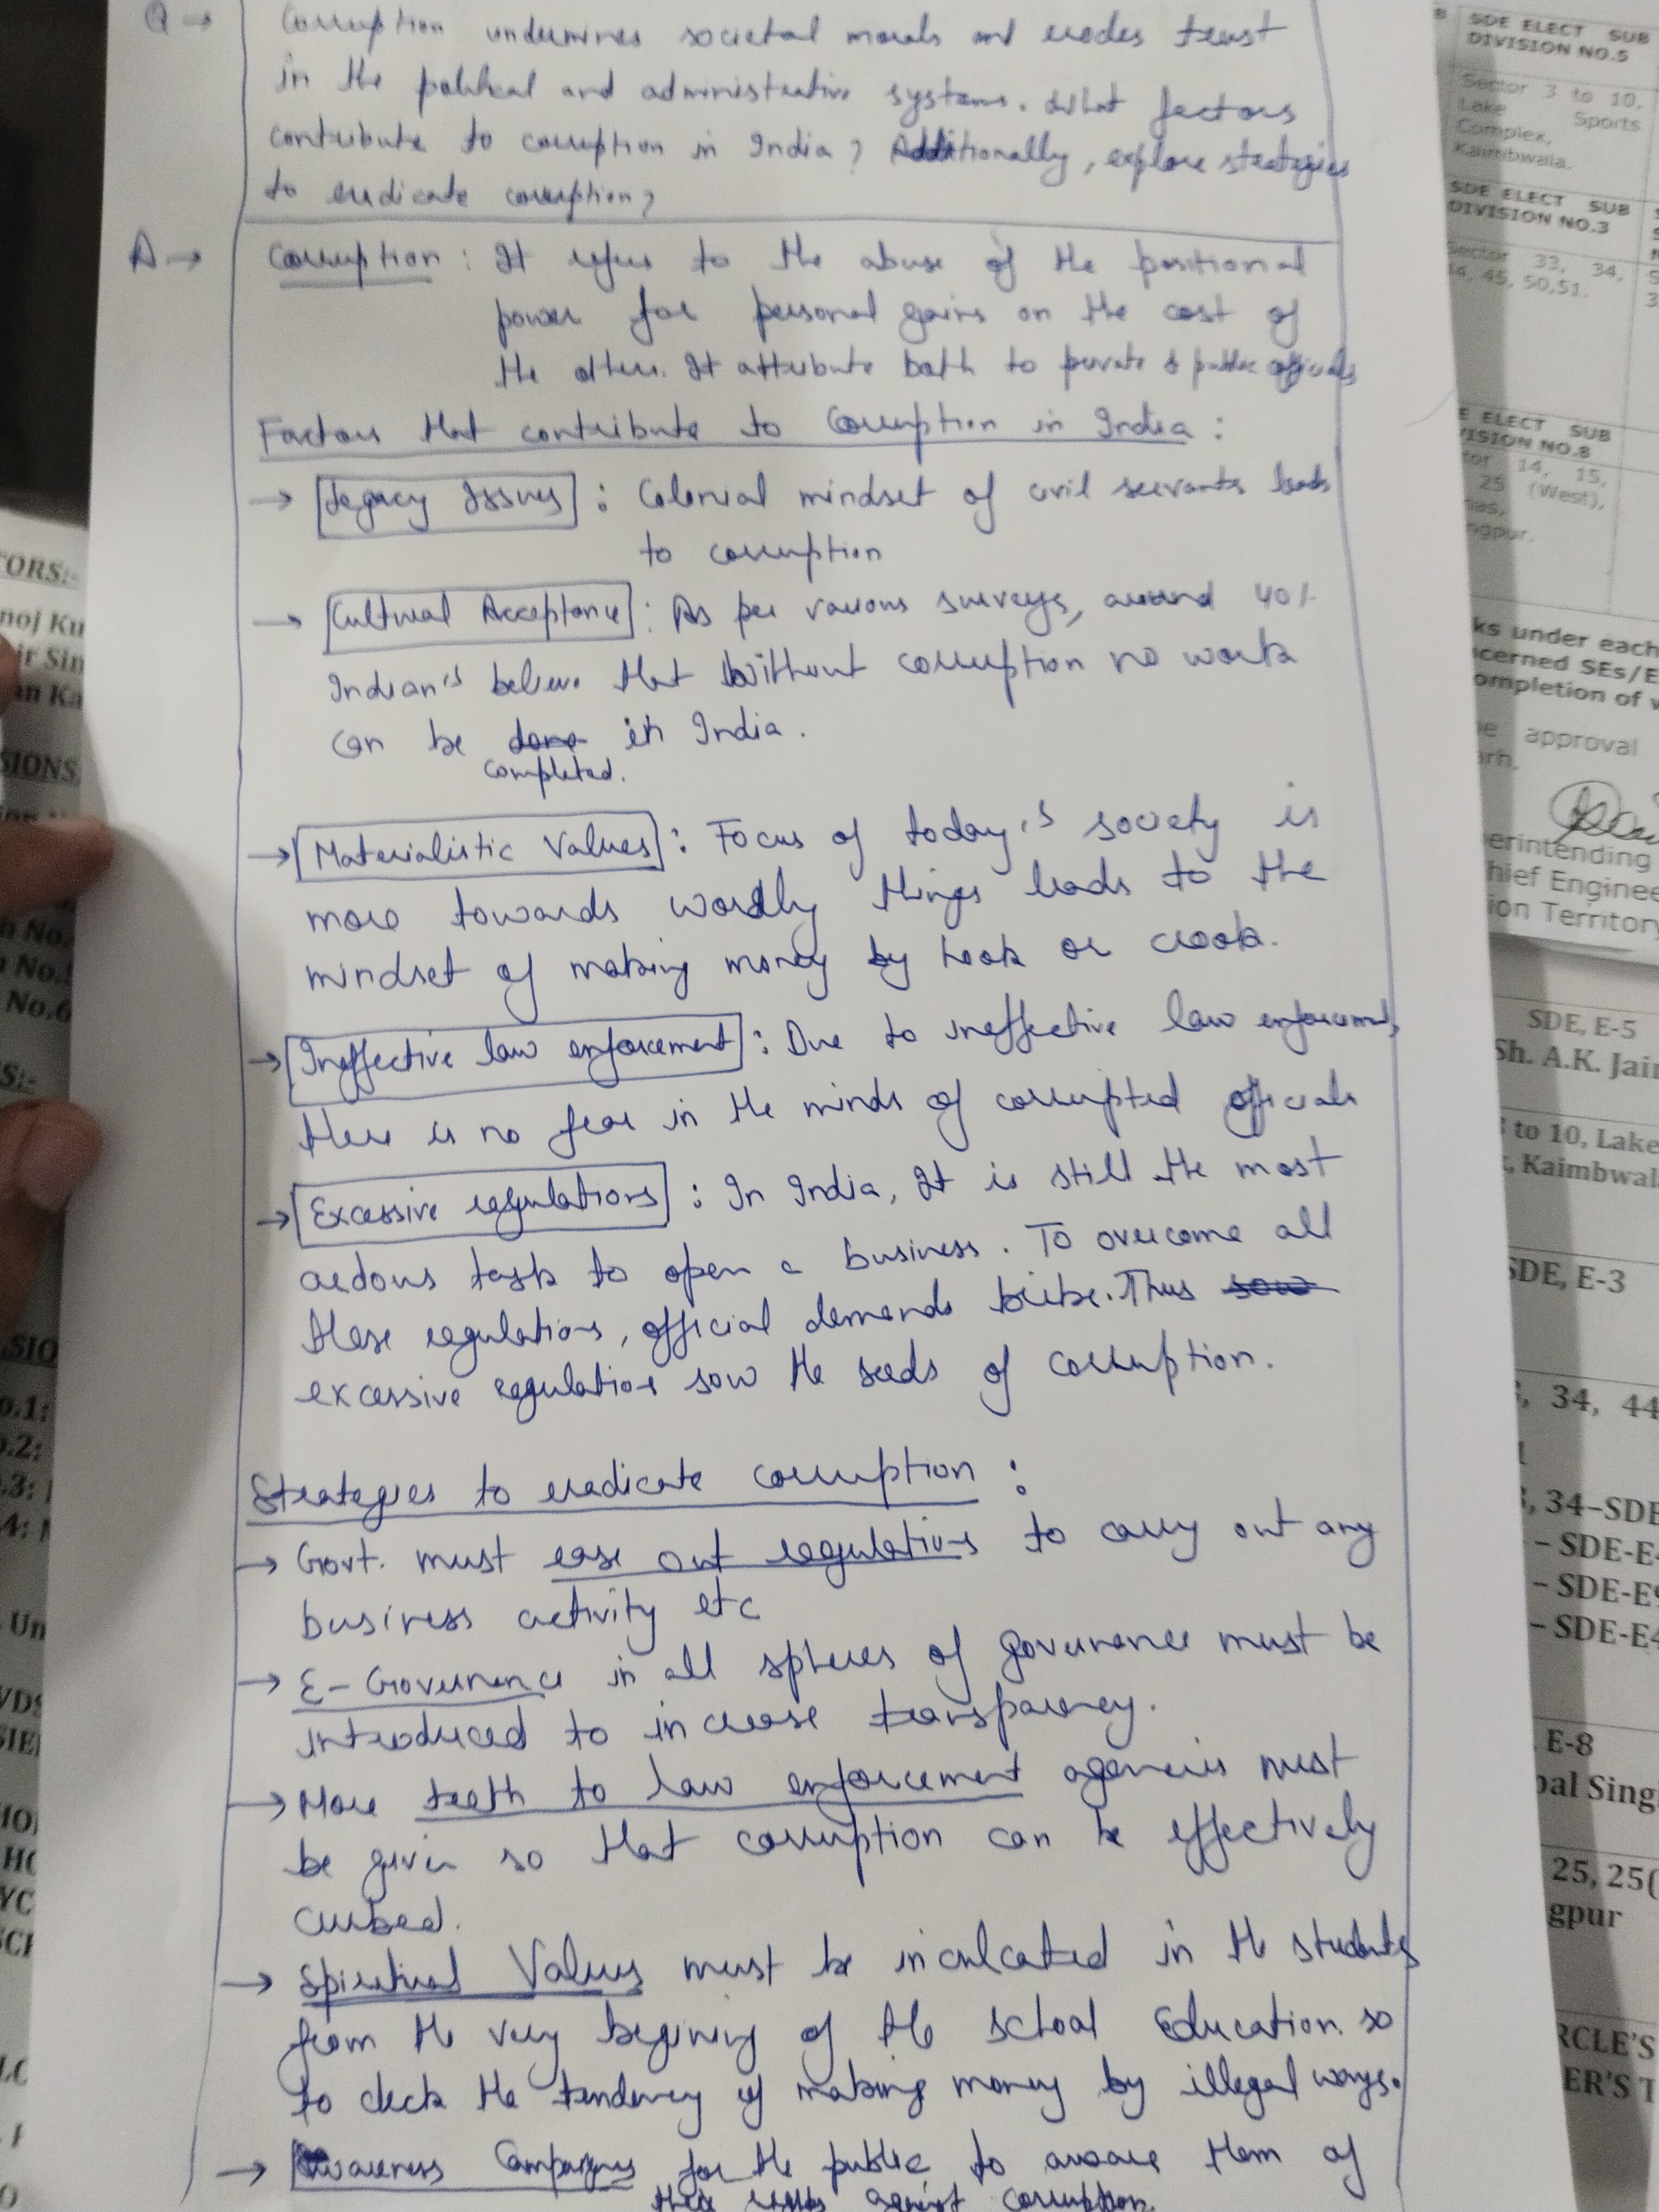 Q→ Corruption undermines societal morals and erodes trust
in the political and administrative systems. What factors
contribute to corruption in India? Additionally, explore strategies
to eradicate corruption?
A→ Corruption: It refers to the abuse of the positional
power for personal gains on the cost of
the others. It attribute both to private & public officials
Factors that contribute to Corruption in India:
→ Legacy Issues: Colonial mindset of civil servants leads
to corruption
→ Cultural Acceptance: As per various surveys, around 40%
Indian's believe that Without corruption no work
can be done in India.
completed.
→ Materialistic Values: Focus of today's society is
more towards wordly things leads to the
mindset of making money by hook or crook.
→ Ineffective law enforcement: Due to ineffective law enforcement,
there is no fear in the minds of corrupted officials
→ Excessive regulations: In India, It is still the most
ardous task to open a business. To overcome all
these regulations, official demands bribe. Thus sow
excessive regulations sow the seeds of corruption.
Strategies to eradicate corruption:
→ Govt. must ease out regulations to carry out any
business activity etc
→ E-Governance in all spheres of governance must be
introduced to increase transparency.
→ More teeth to law enforcement agencies must
be given so that corruption can be effectively
curbed.
→ Spiritual Values must be inculcated in the students
from the very begining of the school Education. so
to check the tendency of making money by illegal ways.
→ Awareness Campaigns for the public to aware them of
their rights against corruption.
SDE ELECT SUB
DIVISION NO.5
Sector 3 to 10,
Lake Sports
Complex,
Kaimbwala.
SDE ELECT SUB
DIVISION NO.3
Sector 33, 34,
44, 45, 50,51.
ELECT SUB
NO.8
14, 15,
25 (West),
ks under each
SEs/E
approval
SDE, E-5
Sh. A.K. Jain
to 10, Lake
SDE, E-3
34, 44
34–SDE
– SDE-E
– SDE-E
– SDE-E
E-8
25, 25(
gpur
RCLE'S
ER'S
TORS:-
noj Ku
No.6